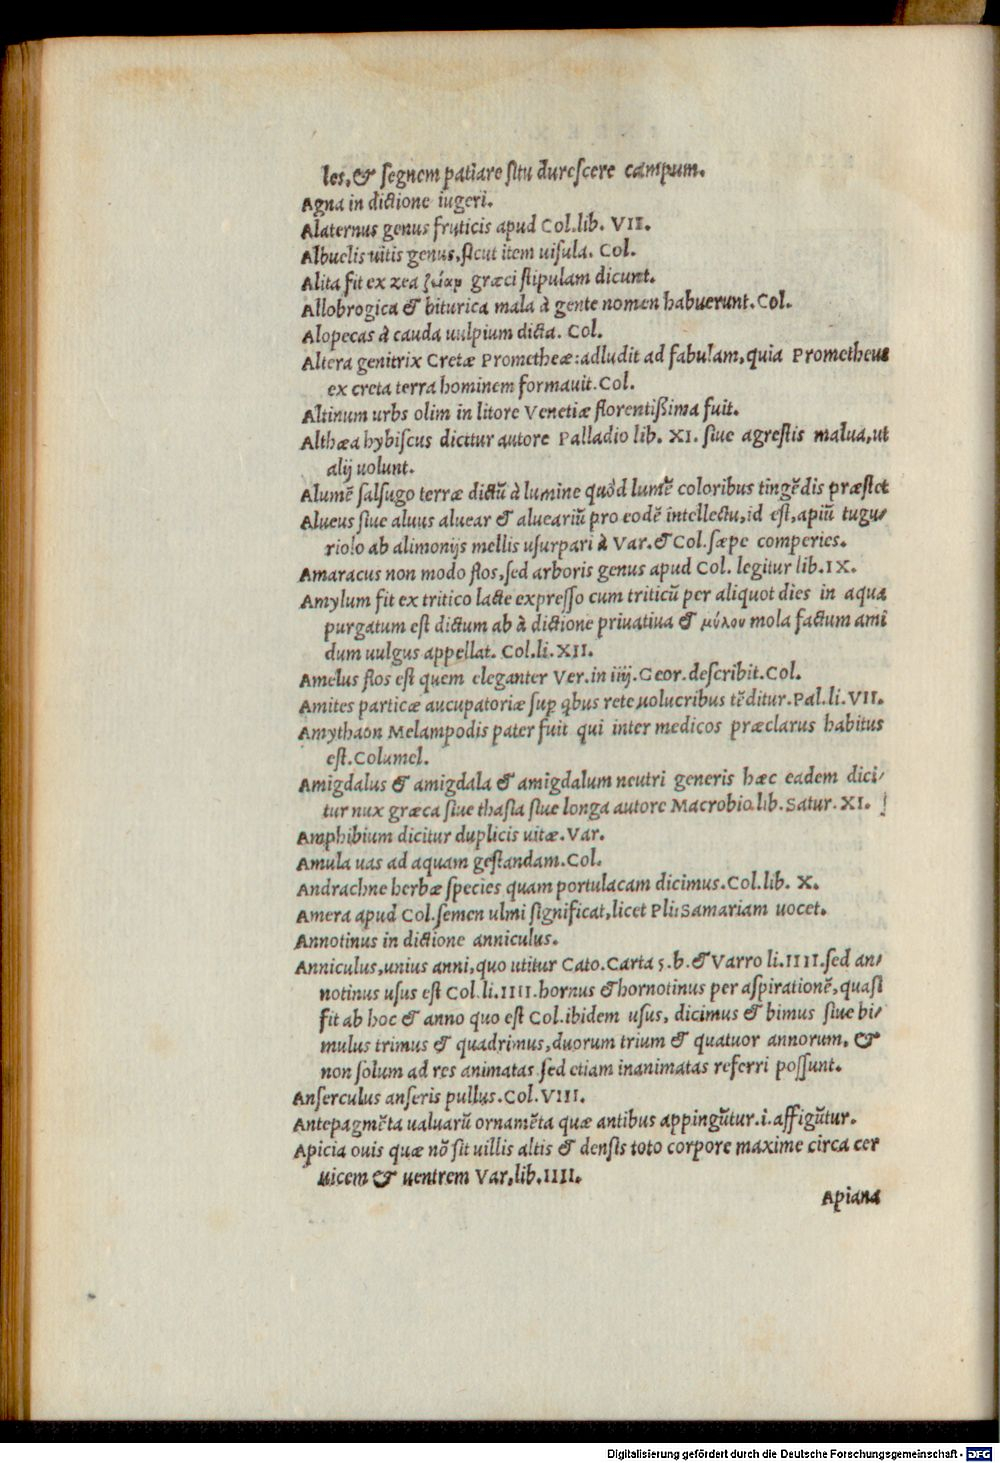 les, & segnem patiare situ durescere campum.
Agna in dictione iugeri.
Alaternus genus fruticis apud Col.lib. VII.
Albuelis uitis genus, sicut item uisula. Col.
Alita fit ex zea ζωάρ græci stipulam dicunt.
Allobrogica & biturica mala à gente nomen habuerunt. Col.
Alopecas à cauda uulpium dicta. Col.
Altera genitrix Cretæ Prometheæ: adludit ad fabulam, quia Prometheus
ex creta terra hominem formauit. Col.
Altinum urbs olim in litore Venetiæ florentißima fuit.
Althæa hybiscus dicitur autore Palladio lib. XI. siue agrestis malua, ut
alij uolunt.
Alumē salsugo terræ dictū à lumine quòd lumē coloribus tingēdis præstet
Alueus siue aluus aluear & alueariū pro eodē intellectu, id est, apiū tugu/
riolo ab alimonijs mellis usurpari à Var. & Col. sæpe comperies.
Amaracus non modo flos, sed arboris genus apud Col. legitur lib. IX.
Amylum fit ex tritico lacte expresso cum triticū per aliquot dies in aqua
purgatum est dictum ab à dictione priuatiua & μύλου mola factum ami
dum uulgus appellat. Col.li.XII.
Amelus flos est quem eleganter Ver. in iiij. Geor. describit. Col.
Amites particæ aucupatoriæ suꝑ qbus rete uolucribus tēditur. Pal.li. VII.
Amythaon Melampodis pater fuit qui inter medicos præclarus habitus
est. Columel.
Amigdalus & amigdala & amigdalum neutri generis hæc eadem dici/
tur nux græca siue thasia siue longa autore Macrobio lib. Satur. XI.
Amphibium dicitur duplicis uitæ. Var.
Amula uas ad aquam gestandam. Col.
Andrachne herbæ species quam portulacam dicimus. Col.lib. X.
Amera apud Col. semen ulmi significat, licet Pli: Samariam uocet.
Annotinus in dictione anniculus.
Anniculus, unius anni, quo utitur Cato. Carta 5.b. & Varro li. IIII. sed an/
notinus usus est Col.li. IIII. hornus & hornotinus per aspirationē, quasi
fit ab hoc & anno quo est Col. ibidem usus, dicimus & bimus siue bi/
mulus trimus & quadrimus, duorum trium & quatuor annorum, &
non solum ad res animatas sed etiam inanimatas referri possunt.
Anserculus anseris pullus. Col. VIII.
Antepagmēta ualuarū ornamēta quæ antibus appingūtur. i. affigūtur.
Apicia ouis quæ nō sit uillis altis & densis toto corpore maxime circa cer
uicem & uentrem Var, lib. IIII.
Apiana
Digitalisierung gefördert durch die Deutsche Forschungsgemeinschaft - DFG